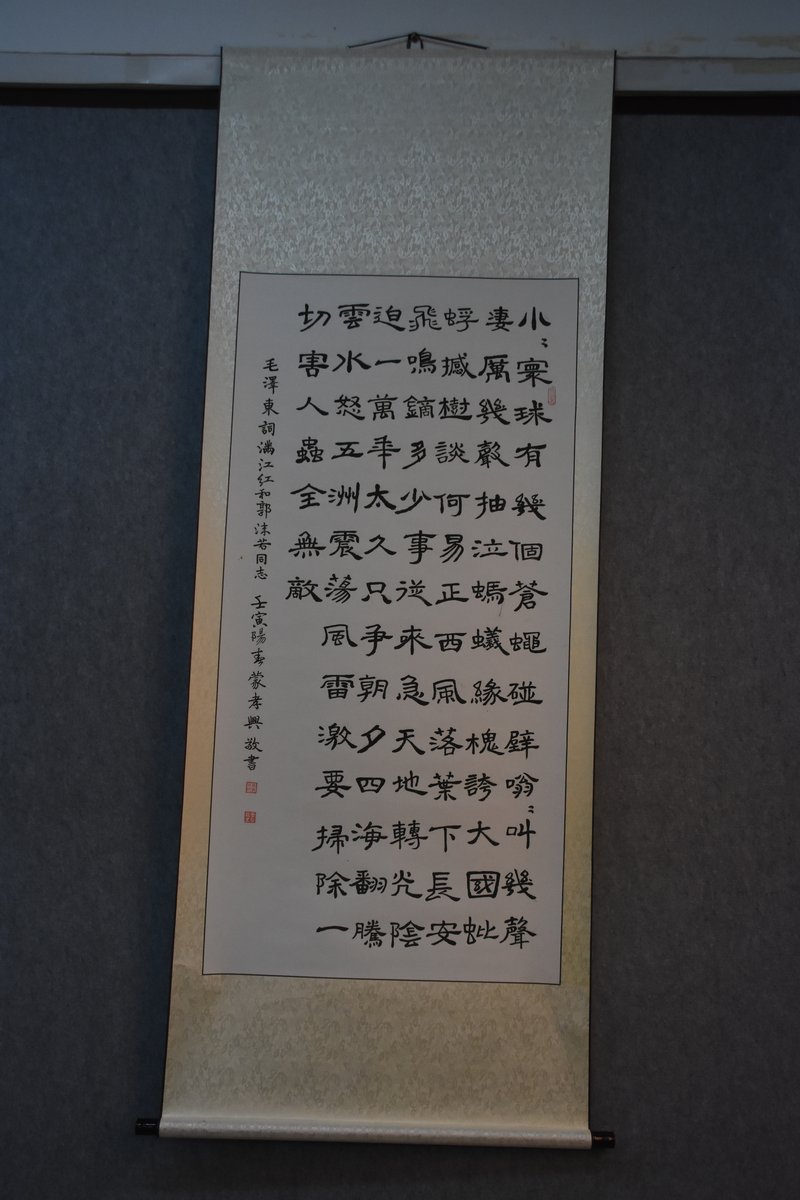 小〻寰球有幾個蒼蠅碰壁嗡〻叫幾聲
凄厲幾聲抽泣螞蟻緣槐誇大國蚍
蜉撼樹談何易正西風落葉下長安
飛鳴鏑多少事從來急天地轉光陰
迫一萬年太久只爭朝夕四海翻騰
雲水怒五洲震蕩風雷激要掃除一
切害人蟲全無敵
毛澤東詞滿江红和郭沫若同志 壬寅陽春蒙孝興敬書